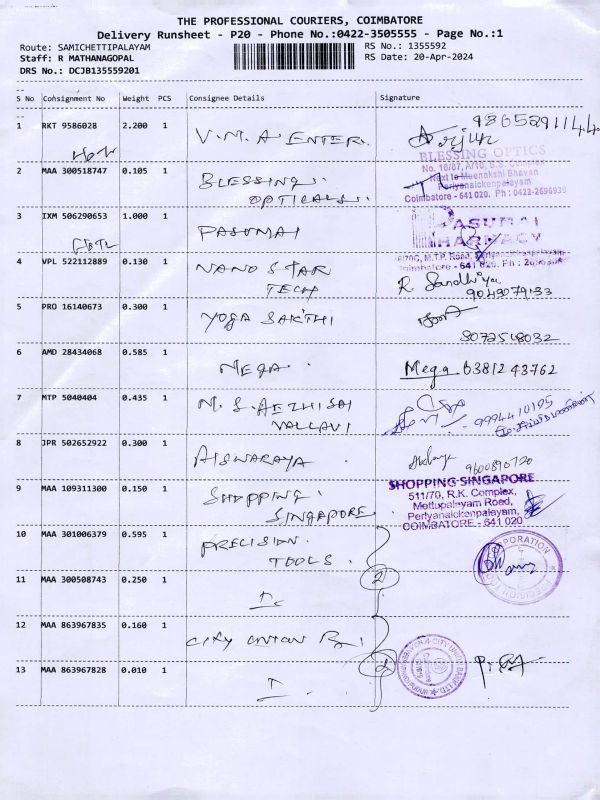 THE PROFESSIONAL COURIERS, COIMBATORE
Delivery Runsheet - P20 - Phone No.:0422-3505555 - Page No.:1
Route: SAMICHETTIPALAYAM
RS No.: 1355592
Staff: R MATHANAGOPAL
RS Date: 20-Apr-2024
DRS No.: DCJB135559201
S No Consignment No Weight PCS Consignee Details Signature
1 RKT 9586028 2.200 1 V.M.A ENTER.
2 MAA 300518747 0.105 1 BLESSING
OPTICALS.
BLESSING OPTICS
No. 16/87, A/10, S.S. Complex
Next to Meenakshi Bhavan
Periyanaickenpalayam
Coimbatore - 641 020. Ph : 0422-2696939
3 IXM 506290653 1.000 1 PASUMAI
PASUMAI
PHARMACY
M.T.P. Road, Periyanaickenpalayam
Coimbatore - 641 020. Ph :
4 VPL 522112889 0.130 1 NANO STAR
TECH
R Sandhiya
9043079133
5 PRO 16140673 0.300 1 YOGA SAKTHI
8072518032
6 AMD 28434068 0.585 1 MEGA.
Mega 63812 43762
7 MTP 5040404 0.435 1 M.S. AEZHISAI
VALLAVI
9994410105
8 JPR 502652922 0.300 1 AISWARAYA
9600890720
9 MAA 109311300 0.150 1 SHOPPING
SINGAPORE
SHOPPING SINGAPORE
511/70, R.K. Complex,
Mettupalayam Road,
Periyanaickenpalayam,
COIMBATORE - 641 020
10 MAA 301006379 0.595 1 PRECISION
TOOLS.
11 MAA 300508743 0.250 1
2
12 MAA 863967835 0.160 1 CITY UNION
13 MAA 863967828 0.010 1
2